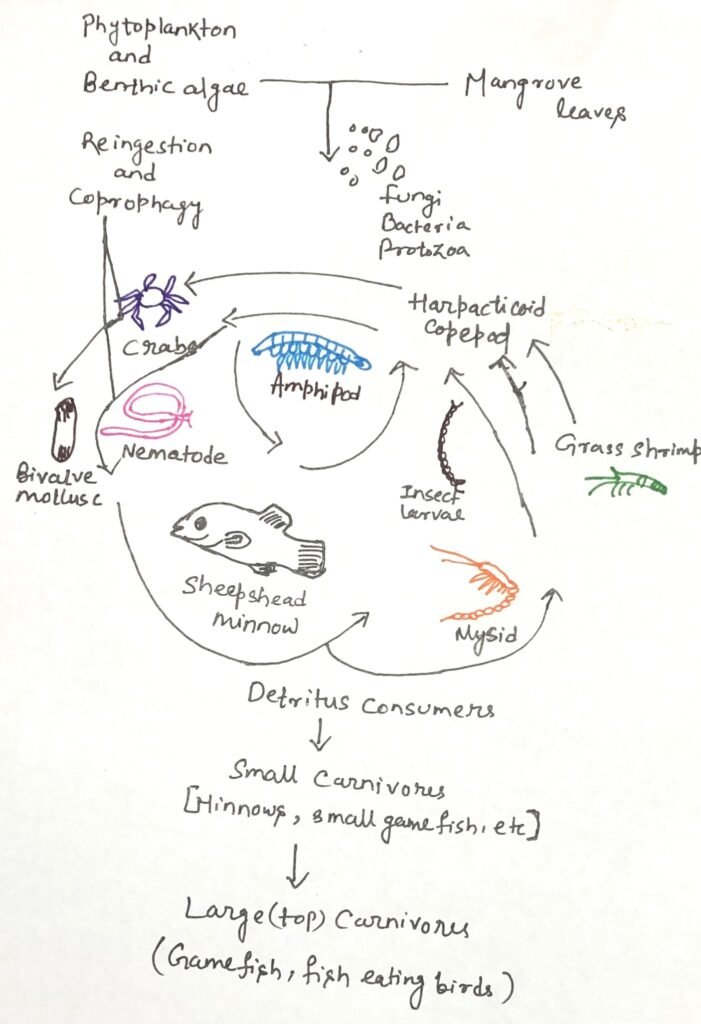 Phytoplankton
and
Benthic algae
Mangrove
leaves
Reingestion
and
Coprophagy
fungi
Bacteria
Protozoa
Harpacticoid
Copepod
Crabs
Amphipod
Nematode
Bivalve
mollusc
Insect
larvae
Grass shrimp
Sheepshead
minnow
Mysid
Detritus consumers
Small Carnivores
[Minnows, small game fish, etc]
Large (top) Carnivores
(Game fish, fish eating birds)